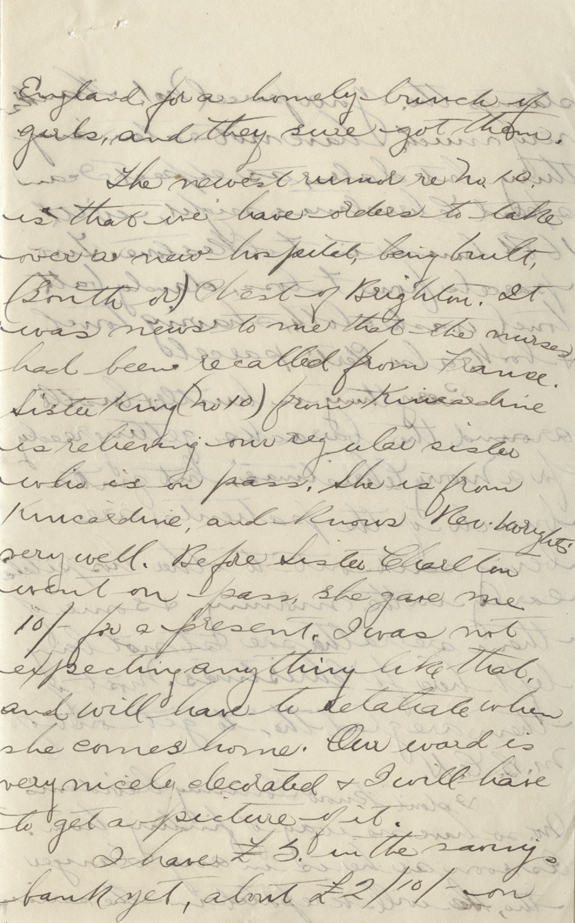 England for a homely bunch of
girls, and they sure got them.
The newest rumor re No. 10.
is that we have orders to take
over a new hospital, being built,
(South or) West of Brighton. It
was news to me that the nurses
had been recalled from France.
Sister King (no 10) from Kincardine
is relieving our regular sister
who is on pass. She is from
Kincardine, and knows Rev. Wrights
very well. Before Sister Charlton
went on pass, she gave me
10/- for a present. I was not
expecting anything like that,
and will have to retatiate when
she comes home. Our ward is
very nicely decorated & I will have
to get a picture of it.
I have £ 5. in the savings
bank yet, about £2/10/- on